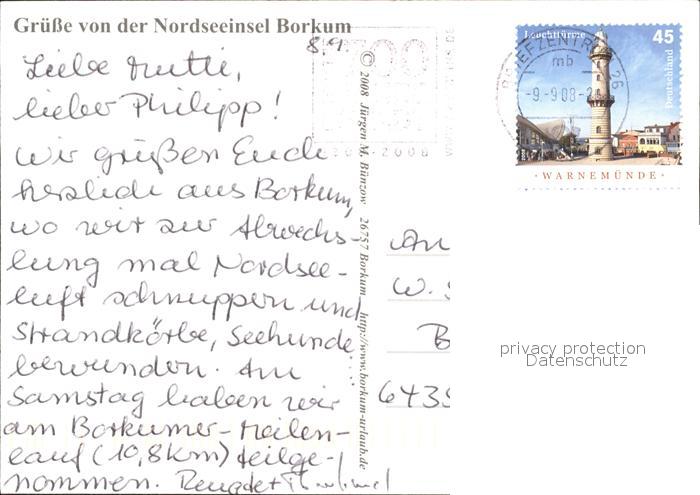 Grüße von der Nordseeinsel Borkum
8.9.
Liebe Mutti,
lieber Philipp!
Wir grüßen Euch
herzlich aus Borkum,
wo wir zur Abwechs-
lung mal Nordsee-
luft schnuppern und
Strandkörbe, Seehunde
bewundern. Am
Samstag haben wir
am Borkumer-Meilen-
lauf (10,8km) teilge-
nommen.
© 2008 Jürgen M. Bürzow 26757 Borkum http://www.borkum-urlaub.de
Leuchttürme 45
Deutschland
BRIEFZENTRUM 26
mb
-9.-9.08-2
·WARNEMÜNDE·
An
W.
B
6439
privacy protection
Datenschutz